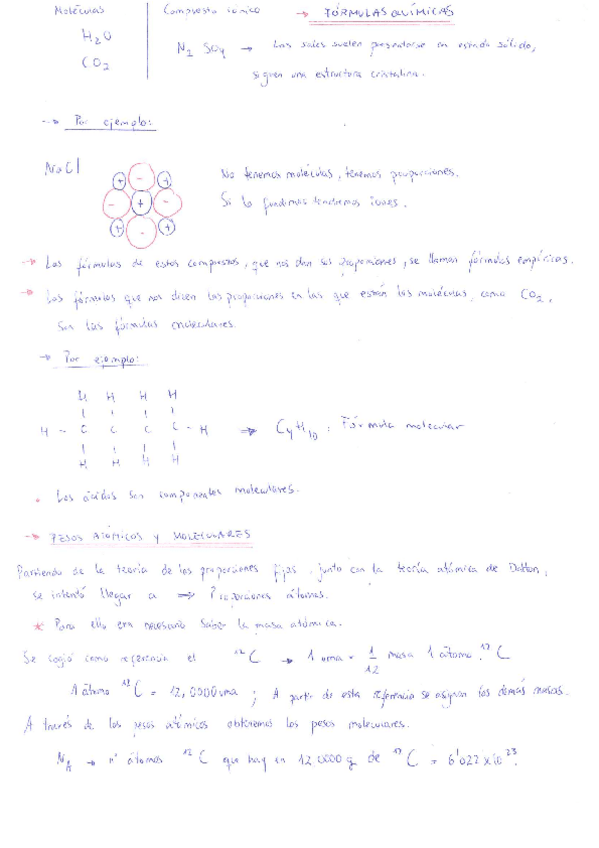 Moléculas
Compuesto iónico → FÓRMULAS QUÍMICAS
H2O
CO2
N2 SO4 → Las sales suelen presentarse en estado sólido,
siguen una estructura cristalina.
→ Por ejemplo:
NaCl
No tenemos moléculas, tenemos proporciones.
Si lo fundimos tendremos iones.
→ Las fórmulas de estos compuestos, que nos dan sus proporciones, se llaman fórmulas empíricas.
→ Las fórmulas que nos dicen las proporciones en las que están las moléculas, como CO2,
son las fórmulas moleculares.
→ Por ejemplo:
H H H H
H - C C C C - H ⇒ C4H10 : Fórmula molecular
H H H H
• Los ácidos son compuestos moleculares.
→ PESOS ATÓMICOS Y MOLECULARES
Partiendo de la teoría de las proporciones fijas, junto con la teoría atómica de Dalton,
se intentó llegar a ⇒ Proporciones átomos.
* Para ello era necesario saber la masa atómica.
Se cogió como referencia el 12C → 1 uma = 1/12 masa 1 átomo 12C
1 átomo 12C = 12,0000 uma ; A partir de esta referencia se asignan las demás masas.
A través de los pesos atómicos obtenemos los pesos moleculares.
NA → nº átomos 12C que hay en 12'0000 g de 12C = 6'022 x 10 23.